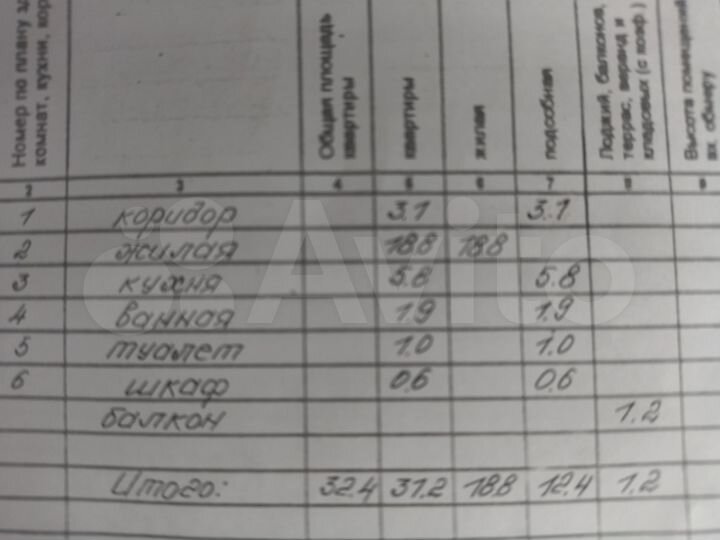 Номер по плану
комнат, кухни, кор
Общая площадь
квартиры
квартиры
жилая
подсобная
Лоджий, балконов,
террас, веранд и
кладовых (с коэф.)
Высота помещений
вн. обмеру
2 3 4 5 6 7 8 9
1 коридор 3.1 3.1
2 жилая 18.8 18.8
3 кухня 5.8 5.8
4 ванная 1.9 1.9
5 туалет 1.0 1.0
6 шкаф 0.6 0.6
балкон 1.2
Итого: 32.4 31.2 18.8 12.4 1.2
Avito